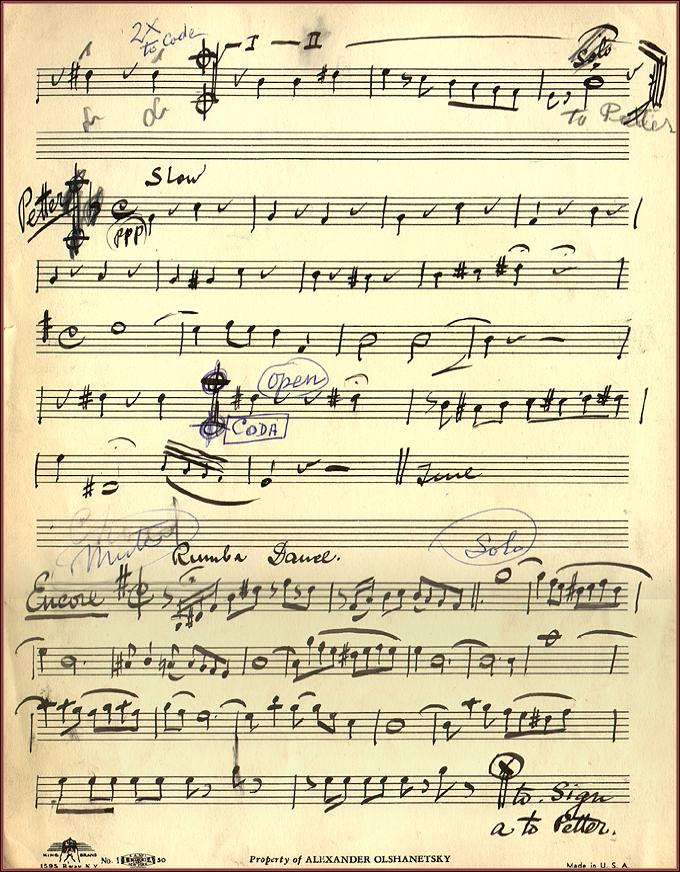 2X
to Coda
I — II
Solo
To Petter
Petter
Slow
ppp
open
CODA
Tune
Muted
Solo
Rumba Dance.
Encore
to Sign
a to Petter.
KING BRAND
1595 B'WAY N.Y.
No. 1
50
Property of ALEXANDER OLSHANETSKY
Made in U. S. A.